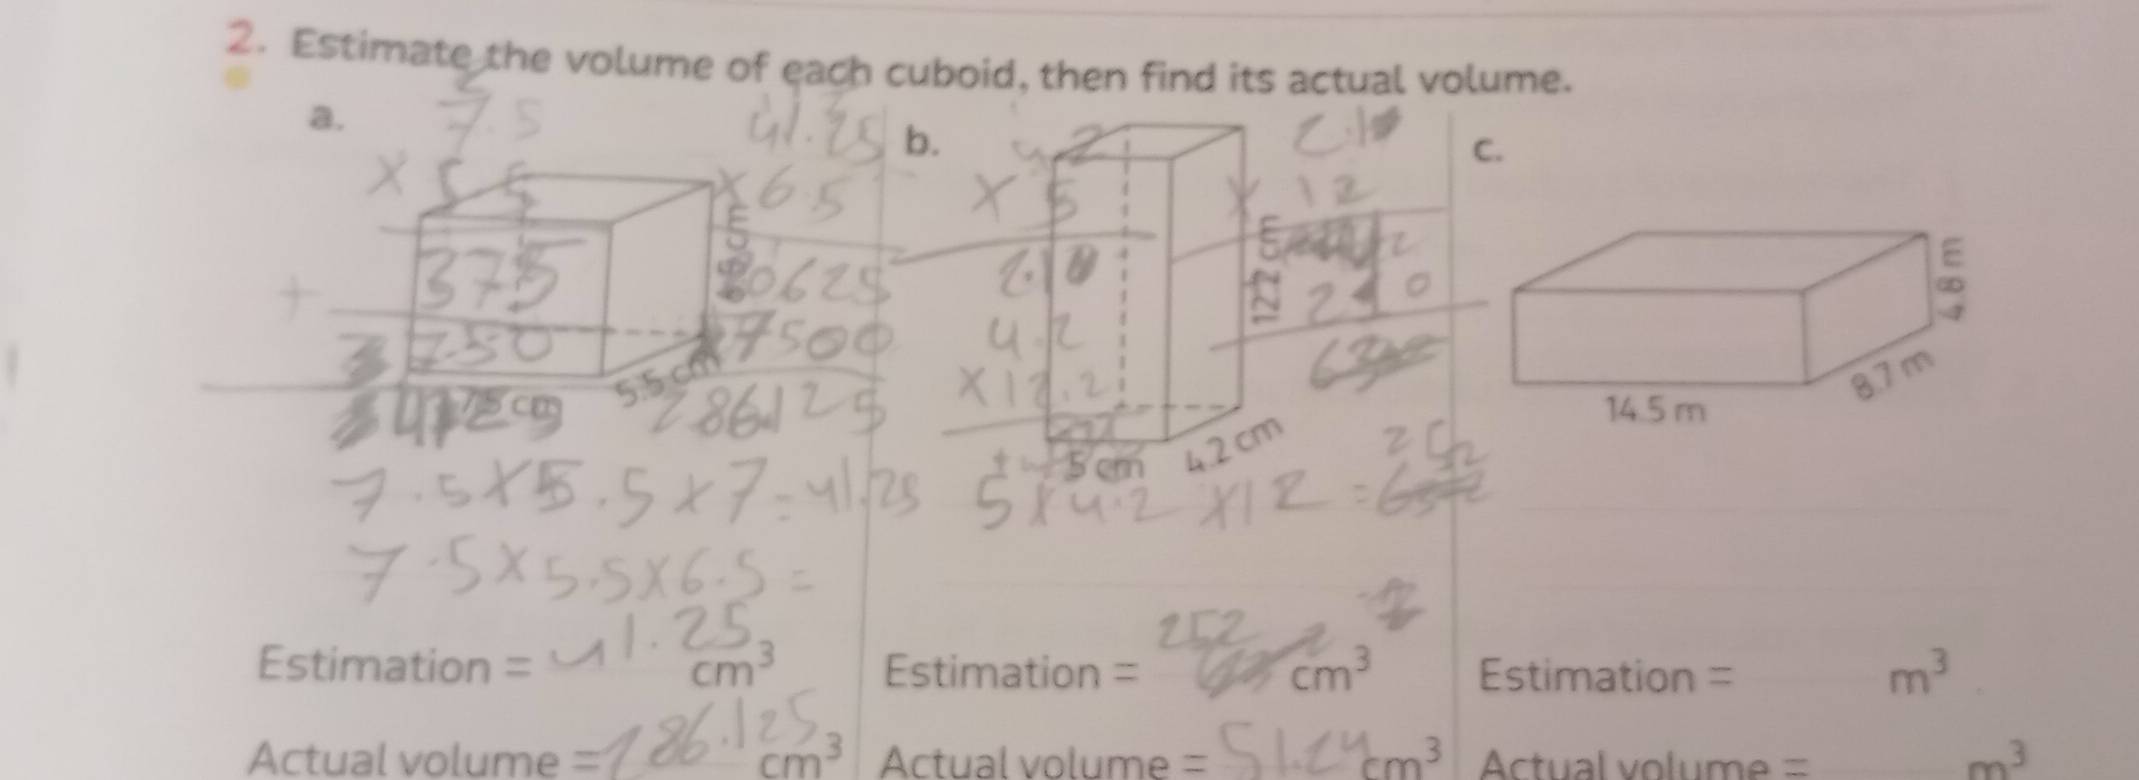 2. Estimate the volume of each cuboid, then find its actual volume.
a.
7.5
× 5.5
375
+
750
5.5 cm
41.25
× 6.5
0625
7500
286.125
7.5×5.5×7=41.25
7.5×5.5×6.5=
Estimation = 41.25 cm³
Actual volume = 286.125 cm³
b.
4.2
× 5
2.10
4.2
×12.2
2.1
× 12
12.2 cm
5 cm
4.2 cm
5×4.2×12=
252
Estimation = 252 cm³
Actual volume = 51.24 cm³
c.
4.8 m
8.7 m
14.5 m
Estimation = m³
Actual volume = m³